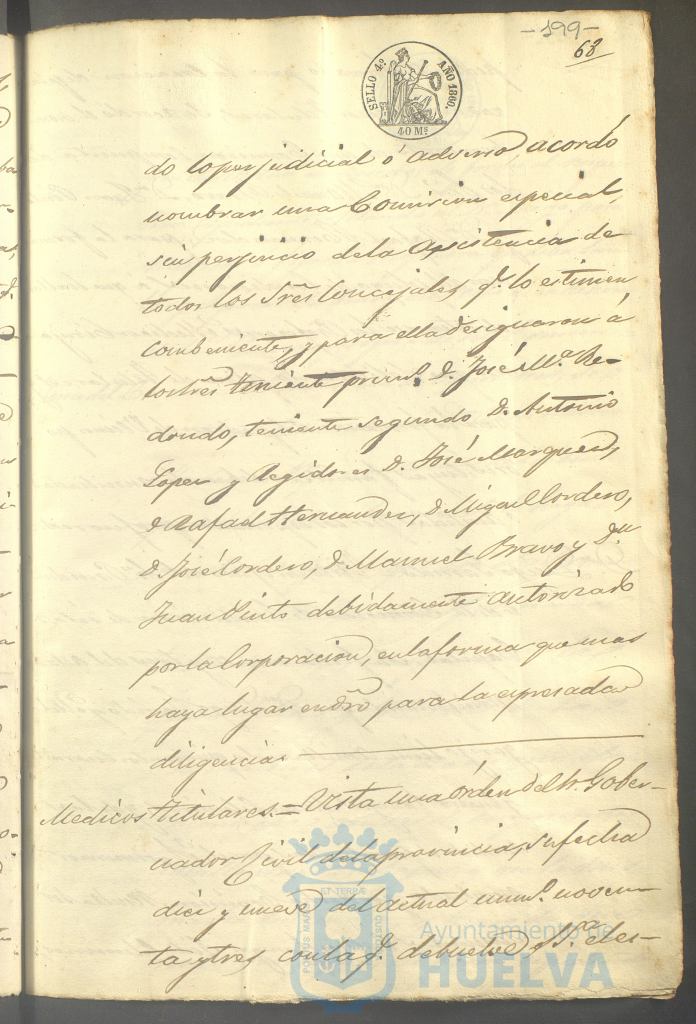 -199-
68
SELLO 4º AÑO 1860.
40 Ms
do lo perjudicial ó adverso, acordó
nombrar una Comision especial,
sin perjuicio dela Asistencia de
todos los Sres Concejales qe. lo estimen
combeniente, y para ella designaron á
los Sres teniente primo. D. José Ma. Re-
dondo, teniente segundo D. Antonio
Lopez y Regidores D. José Marquez,
D Rafael Hernandez, D Miguel Cordero,
D José Cordero, D Manuel Bravo y Dn
Juan Pinto debidamente autorizado
por la Corporacion, en la forma que mas
haya lugar en dro para la espresada
diligencia
Medicos titulares.= Vista una órden del Sr. Gober-
nador Civil dela provincia, su fecha
diez y nueve del actual numo. noven-
ta y tres con la qe. debuelve S. Sa. el es-
PORTUS MARIS ET TERRÆ CUSTODIA
Ayuntamiento de
HUELVA